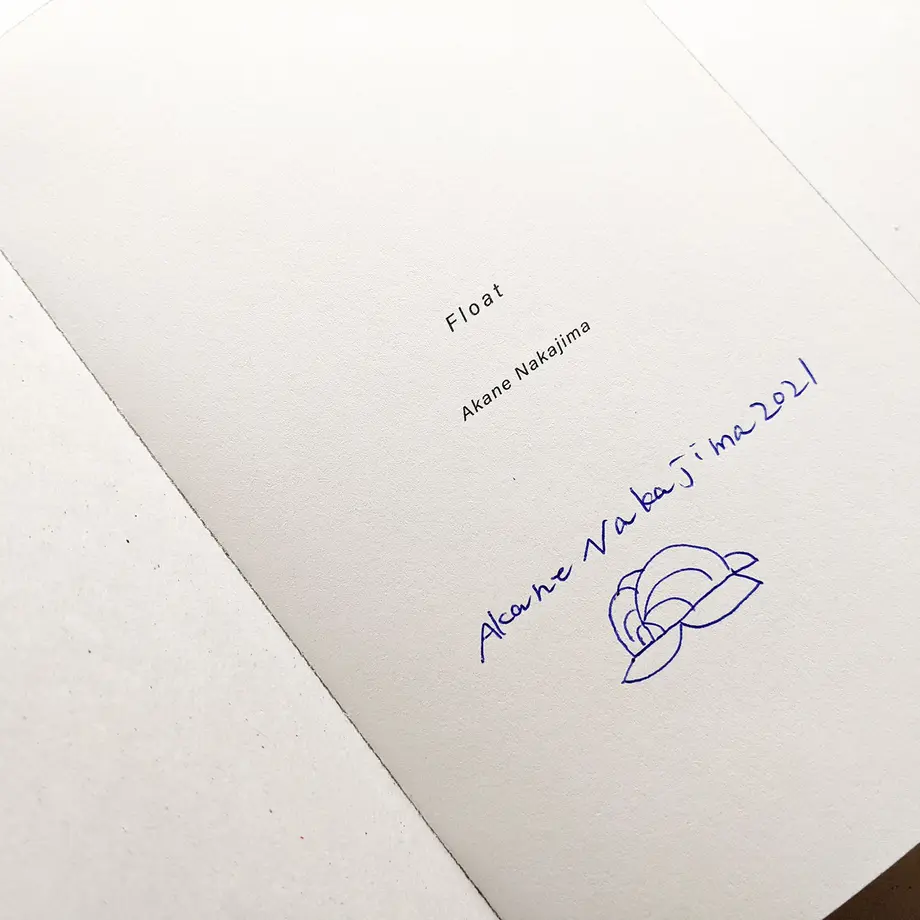 Float
Akane Nakajima
Akane Nakajima 2021